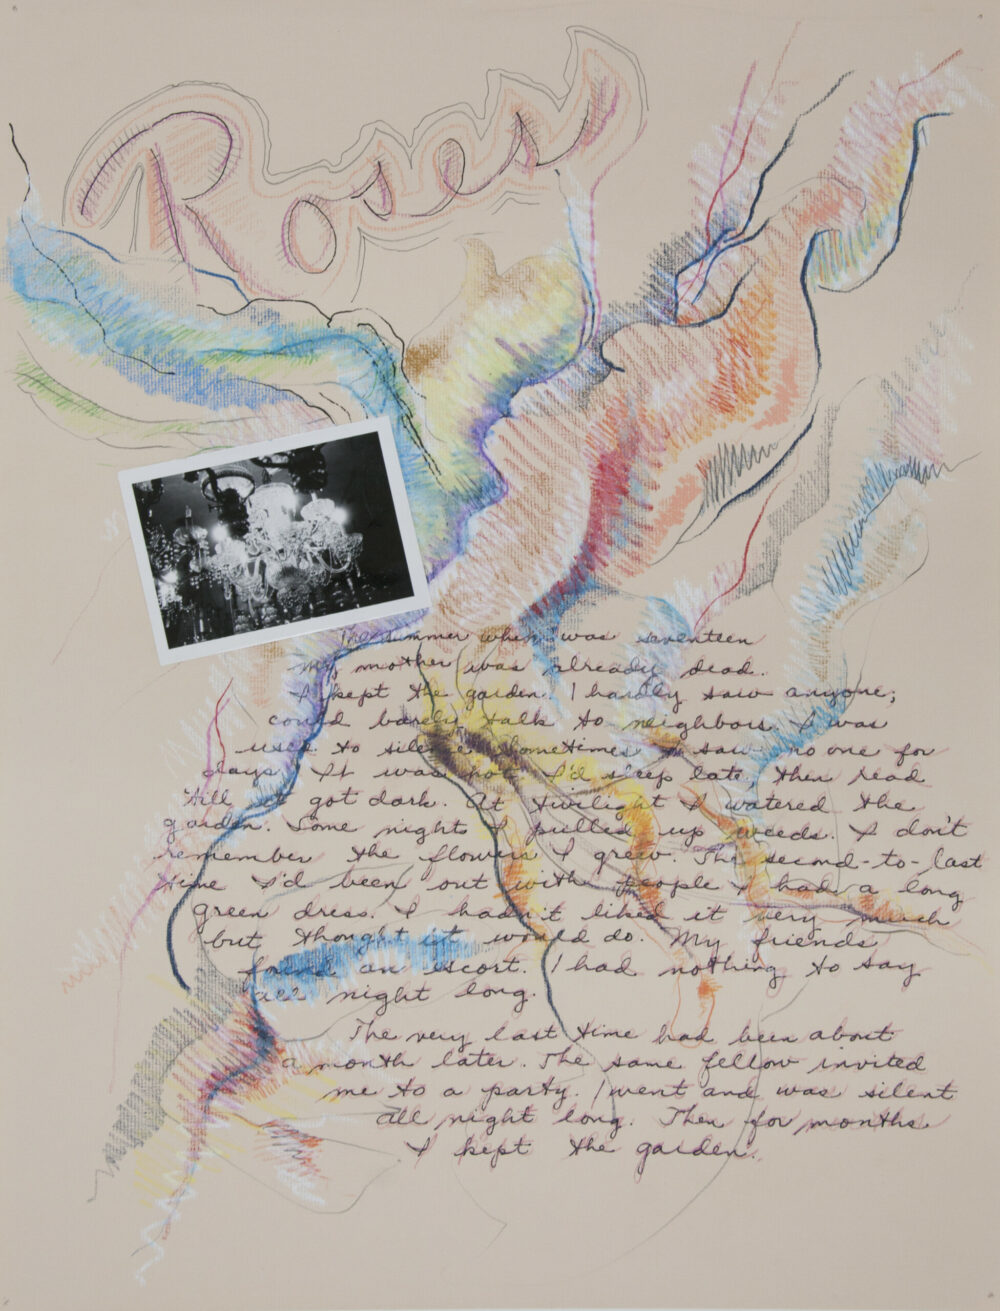 Roses
The summer when I was seventeen
my mother was already dead.
I kept the garden. I hardly saw anyone;
could barely talk to neighbors. I was
used to silence. Sometimes I saw no one for
days. It was hot. I'd sleep late, then read
till it got dark. At twilight I watered the
garden. Some nights I pulled up weeds. I don't
remember the flowers I grew. The second-to-last
time I'd been out with people I had a long
green dress. I hadn't liked it very much
but thought it would do. My friends
found an escort. I had nothing to say
all night long.
The very last time had been about
a month later. The same fellow invited
me to a party. I went and was silent
all night long. Then for months
I kept the garden.